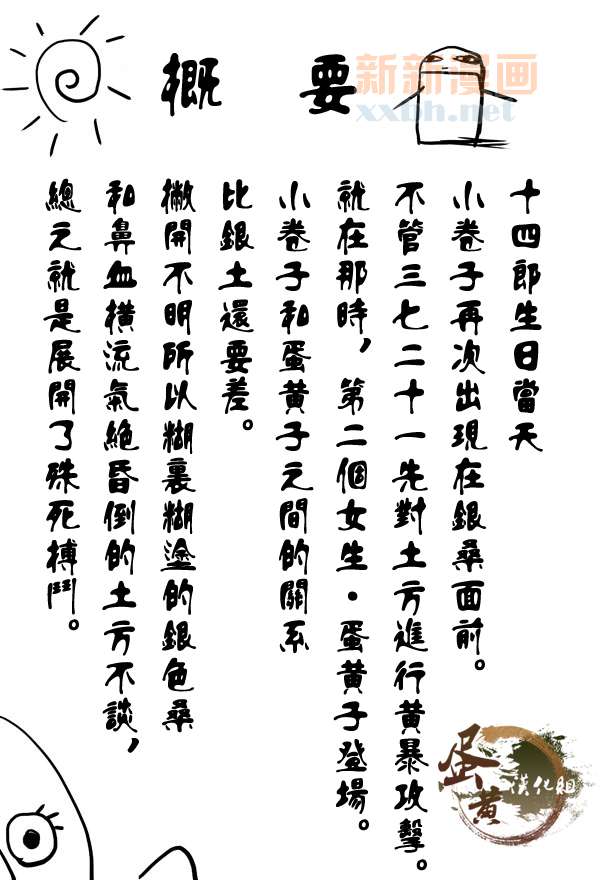 概要
新新漫画
xxbh.net
十四郎生日當天
小卷子再次出現在銀桑面前。
不管三七二十一先對土方進行黃暴攻擊。
就在那時，第二個女生・蛋黃子登場。
小卷子和蛋黃子之間的關系
比銀土還要差。
撇開不明所以糊裏糊塗的銀色桑
和鼻血橫流氣絕昏倒的土方不談，
總之就是展開了殊死搏鬥。
蛋黃漢化組